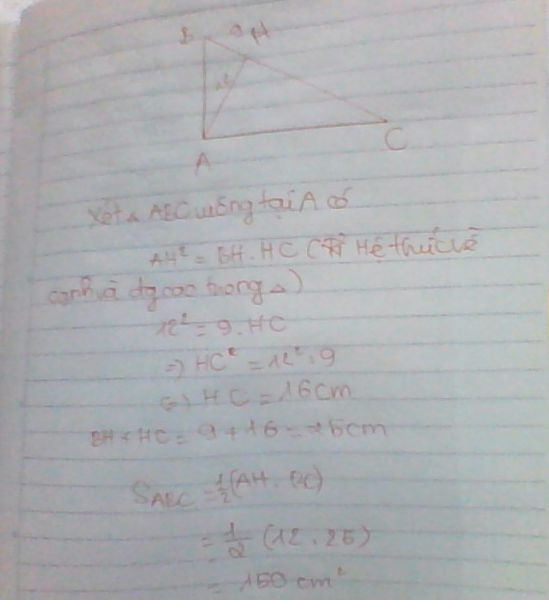 B 9 H
12
A
C
Xét △ ABC vuông tại A có
AH² = BH . HC ( Hệ thức về
cạnh và đg cao trong △)
12² = 9 . HC
=> HC² = 12² : 9
=> HC = 16cm
BH + HC = 9 + 16 = 25cm
S ABC = 1/2 (AH . BC)
= 1/2 (12 . 25)
= 150 cm²